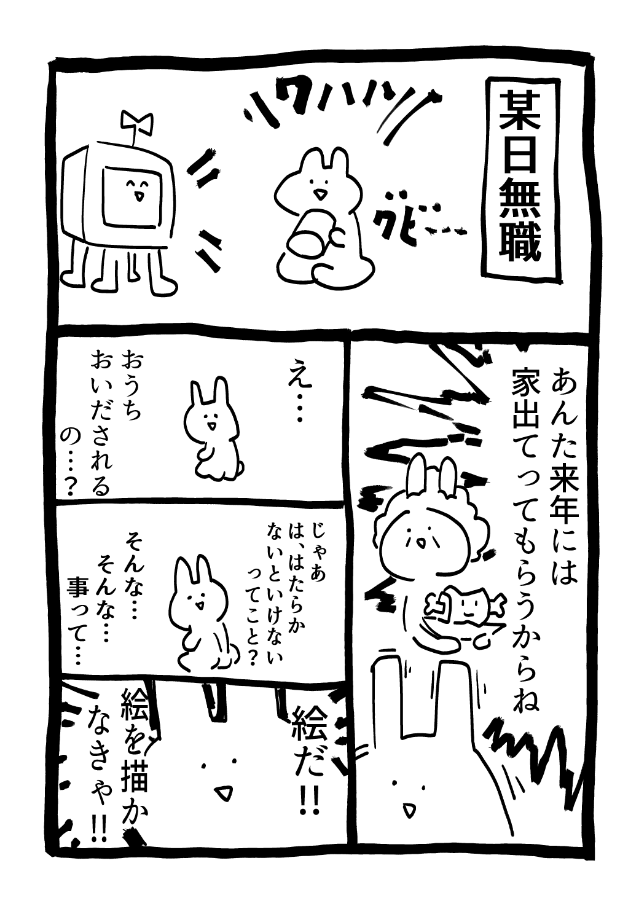 某日無職
ワハハハ
グビ…
あんた来年には
家出てってもらうからね
え…
おうち
おいだされる
の…？
じゃあ
は、はたらか
ないといけない
ってこと？
そんな…
そんな…
事って…
絵だ!!
絵を描か
なきゃ!!